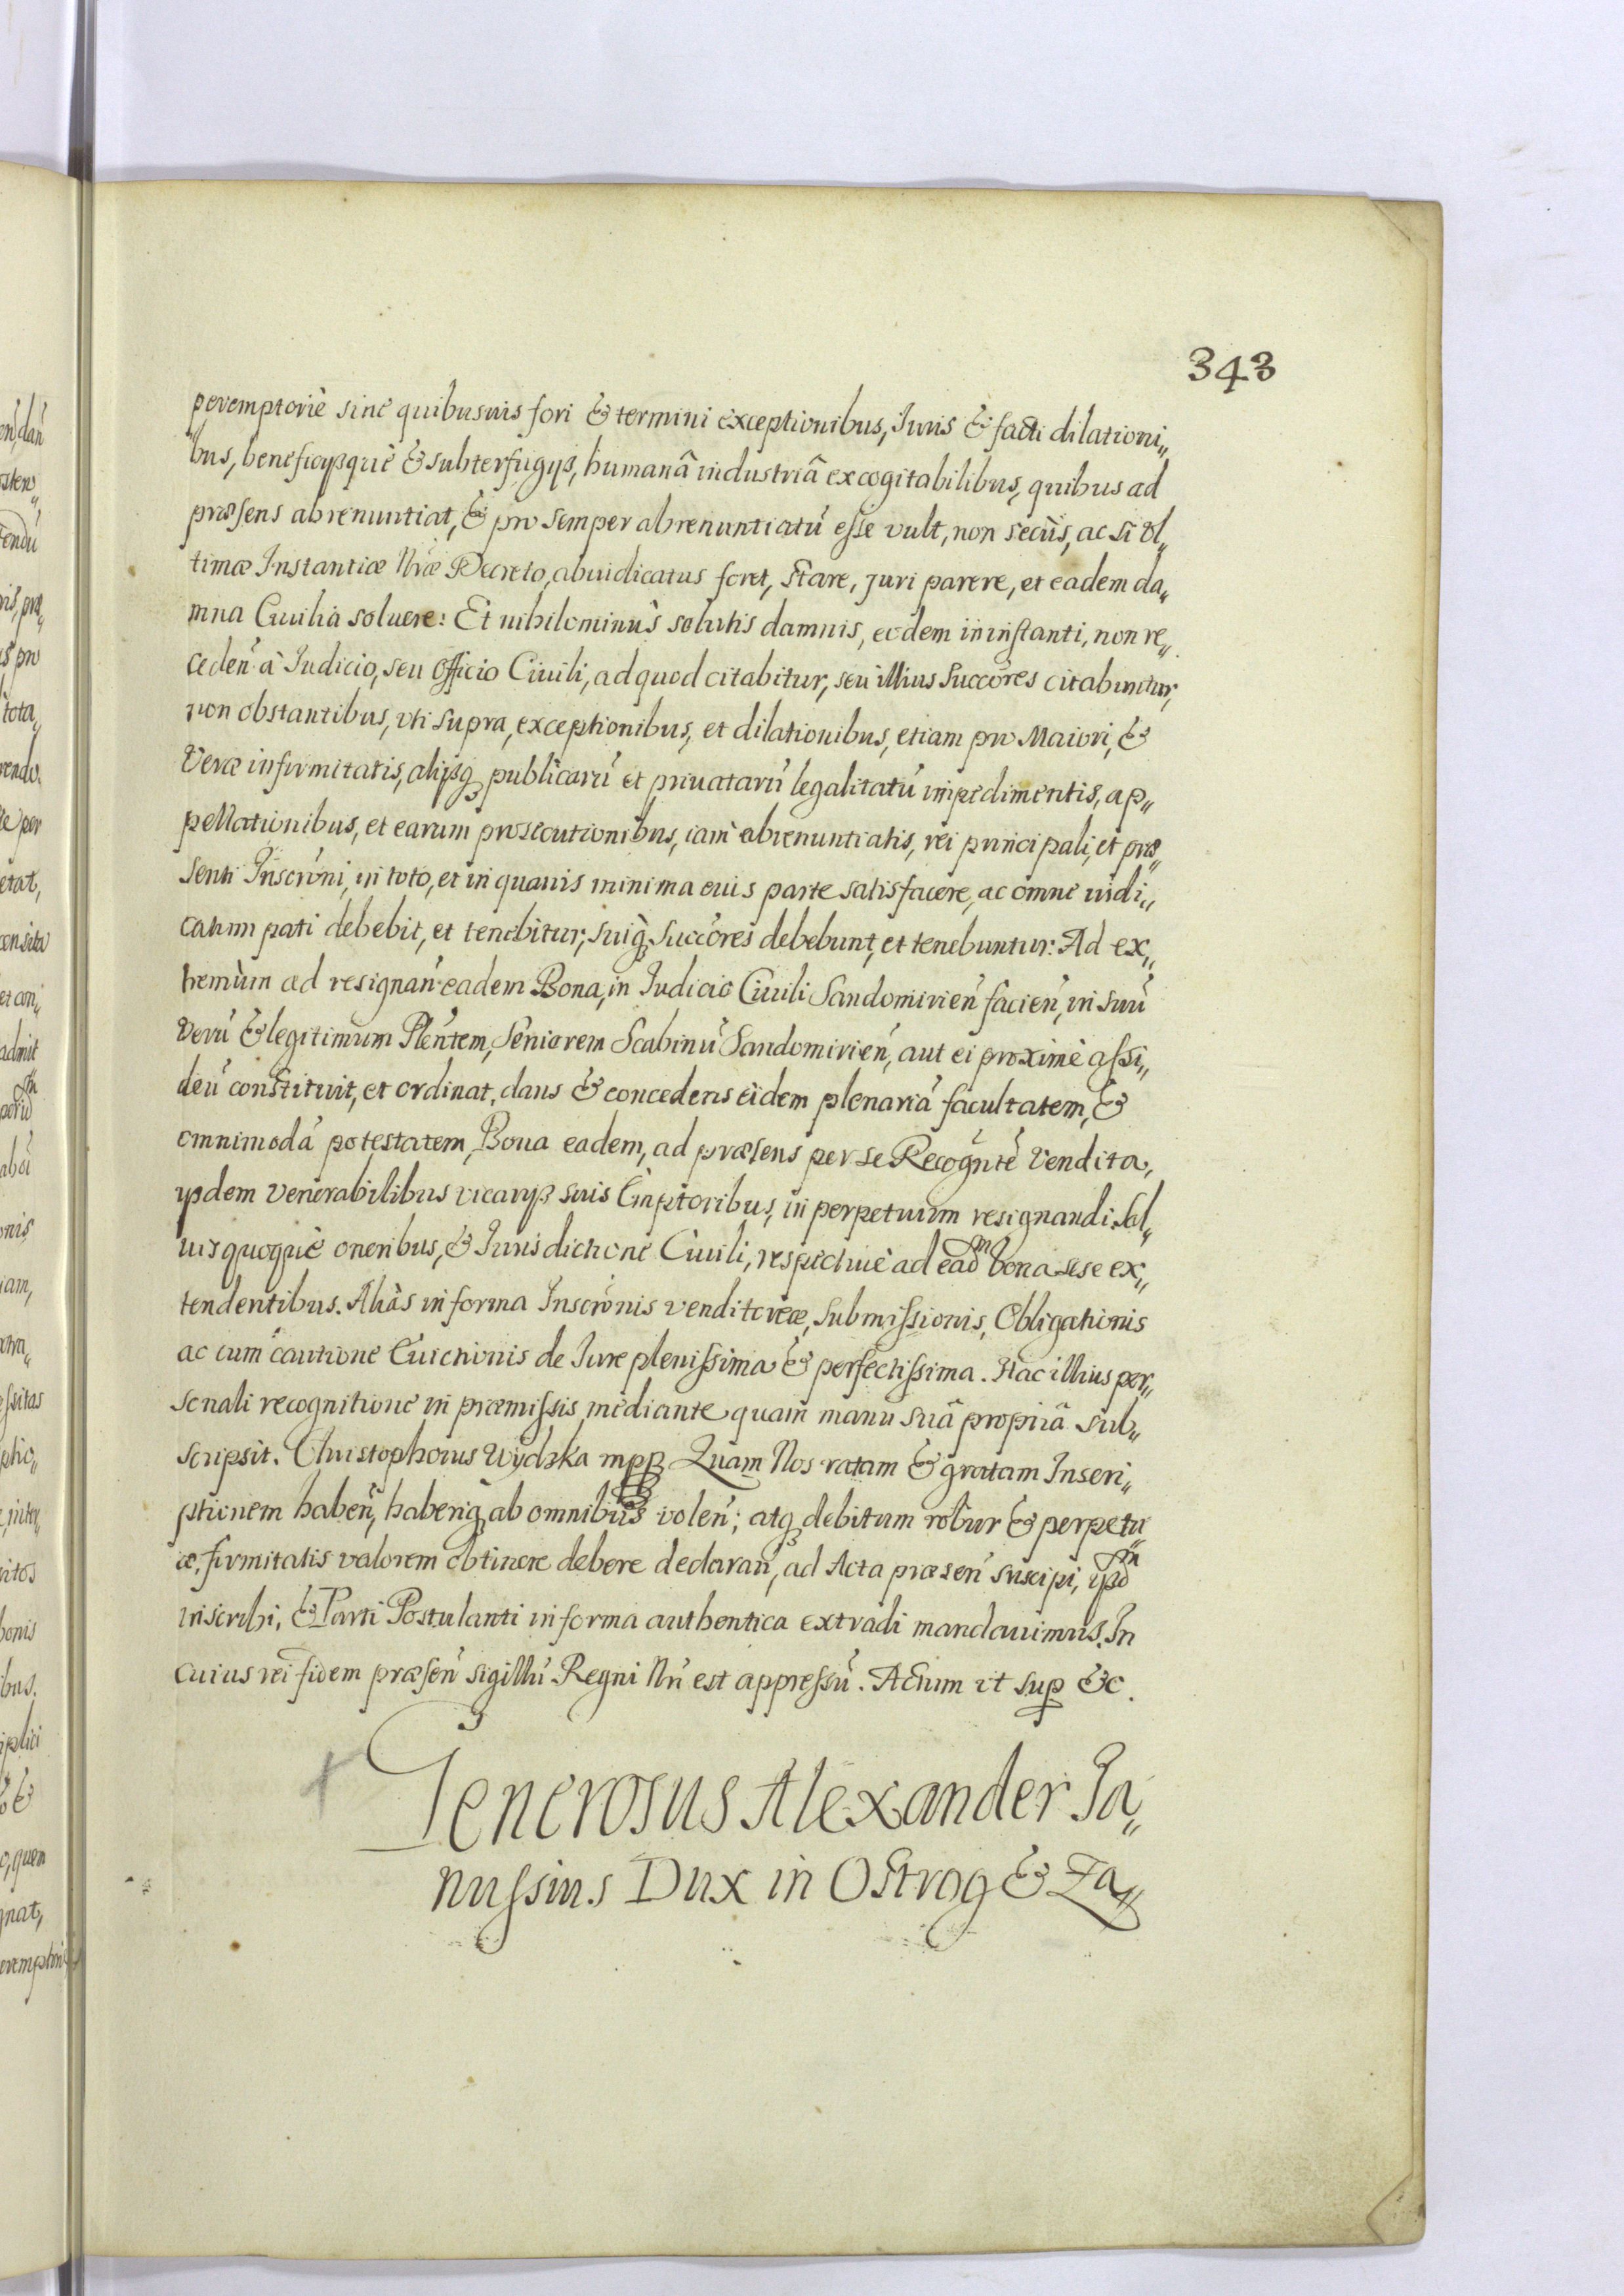 343
peremptoriè sine quibusuis fori & termini exceptionibus, Iuris & facti dilationi„
bus, beneficysque & subterfugys, humanâ industriâ excogitabilibus, quibus ad
præsens abrenuntiat, & pro semper abrenuntiatũ esse vult, non secùs, ac si Vl„
timæ Instantiæ Nræ Decreto, abiudicatus foret, stare, juri parere, et eadem da„
mna Ciuilia soluere: Et nihilominùs solutis damnis, eodem in instanti, non re„
ceden̄ à Iudicio, seu Officio Ciuili, ad quod citabitur, seu illius Succōres citabuntur,
non obstantibus, vti supra, exceptionibus, et dilationibus, etiam pro Maiori, &
Veræ infirmitatis, alijsq; publicarũ et priuatarũ legalitatũ impedimentis, ap„
pellationibus, et earum prosecutionibus, iam abrenuntiatis, rei principali, et præ„
senti Inscrōni, in toto, et in quauis minima euis parte satisfacere, ac omne iudi„
catum pati debebit, et tenebitur, suiq; Succōres debebunt, et tenebuntur: Ad ex„
tremùm ad resignan̄ eadem Bona, in Iudicio Ciuili Sandomirien̄ facien̄, in suũ
Verũ & legitimum Plēntem, Seniorem Scabinũ Sandomirien̄, aut ei proximè assi„
den̄ constituit, et ordinat, dans & concedens eidem plenariã facultatem, &
omnimodã potestatem, Bona eadem, ad præsens per se Recogn̄tē Vendita,
ysdem Venerabilibus vicarys suis Emptoribus, in perpetuum resignandi. Sal„
uis quoque oneribus, & Iurisdictione Ciuili, respectiuè ad eadm bona sese ex„
tendentibus. Aliàs in forma Inscrōnis venditoreæ, submissionis, Obligationis
ac cum cautione Euictionis de Iure plenissima & perfectissima. Hac illius per„
sonali recognitione in præmissis mediante quam manu suâ propriâ sub„
scripsit. Christophorus Wydzka mpp Quam Nos ratam & gratam Inscri„
ptionem haben̄, haberiq; ab omnibus volen̄; atq; debitum robur & perpetu„
æ firmitatis valorem obtinere debere declaran̄, ad Acta præsen̄ suscipi, ysdm
inscribi, & Parti Postulanti in forma authentica extradi mandauimus. In
cuius rei fidem præsen̄ sigillũ Regni Nr̄i est appressũ. Actum vt sup &c.
Generosus Alexander Ja„
nussius Dux in Ostrog & Za„